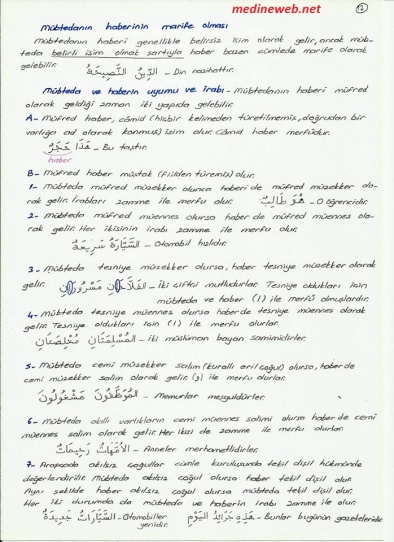 medineweb.net
2
Mübtedanın haberinin marife olması
Mübtedanın haberi genellikle belirsiz isim olarak gelir, ancak müb-
teda belirli isim olmak şartıyla haber bazen cümlede marife olarak
gelebilir.
الدِّينُ النَّصِيحَةُ - Din nasihattır.
Mübteda ve haberin uyumu ve irabı - Mübtedanın haberi müfred
olarak geldiği zaman iki yapıda gelebilir.
A- Müfred haber, câmid (hiçbir kelimeden türetilmemiş, doğrudan bir
varlığa ad olarak konmuş) isim olur. Câmid haber merfûdur.
هَذَا حَجَرٌ - Bu taştır.
haber
B- Müfred haber müştak (Fiilden türemiş) olur.
1- Mübteda müfred müzekker olunca haberi de müfred müzekker ola-
rak gelir. İrabları zamme ile merfu olur. هُوَ طَالِبٌ - O öğrencidir.
2- Mübteda müfred müennes olursa haber de müfred müennes ola-
rak gelir. Her ikisinin irabı zamme ile merfu olur.
السَّيَّارَةُ سَرِيعَةٌ - Otomobil hızlıdır.
3- Mübteda tesniye müzekker olursa, haber tesniye müzekker olarak
gelir. الفَلَّاحَانِ مَسْرُورَانِ - İki çiftçi mutludurlar. Tesniye oldukları için
mübteda ve haber (ا) ile merfû olmuşlardır.
4- Mübteda tesniye müennes olursa haber de tesniye müennes olarak
gelir. Tesniye oldukları için (ا) ile merfu olurlar.
المُسْلِمَتَانِ مُخْلِصَتَانِ - İki müslüman bayan samimidirler.
5- Mübteda cemi müzekker salim (kurallı eril çoğul) olursa, haber de
cemi müzekker salim olarak gelir. (و) ile merfu olurlar.
المُوَظَّفُونَ مَشْغُولُونَ - Memurlar meşguldürler.
6- Mübteda akıllı varlıkların cemi müennes salimi olursa haber de cemi
müennes salim olarak gelir. Her ikisi de zamme ile merfu olur.
الأُمَّهَاتُ رَحِيمَاتٌ - Anneler merhametlidirler.
7- Arapçada akılsız çoğullar cümle kuruluşunda tekil dişil hükmünde
değerlendirilir. Mübteda akılsız çoğul olursa haber tekil dişil olur.
Aynı şekilde haber akılsız çoğul olursa mübteda tekil dişil olur.
Her iki durumda da mübteda ve haberin irabı zamme ile olur.
السَّيَّارَاتُ جَدِيدَةٌ - Otomobiller yenidir. هَذِهِ جَرَائِدُ اليَوْمِ - Bunlar bugünün gazeteleridir.